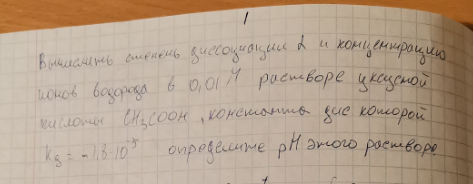 1
Вычислить степень диссоциации α и концентрацию
ионов водорода в 0,01 М растворе уксусной
кислоты CH₃COOH, константа дис которой
Kg = -1,8·10⁻⁵ определите pH этого раствора.